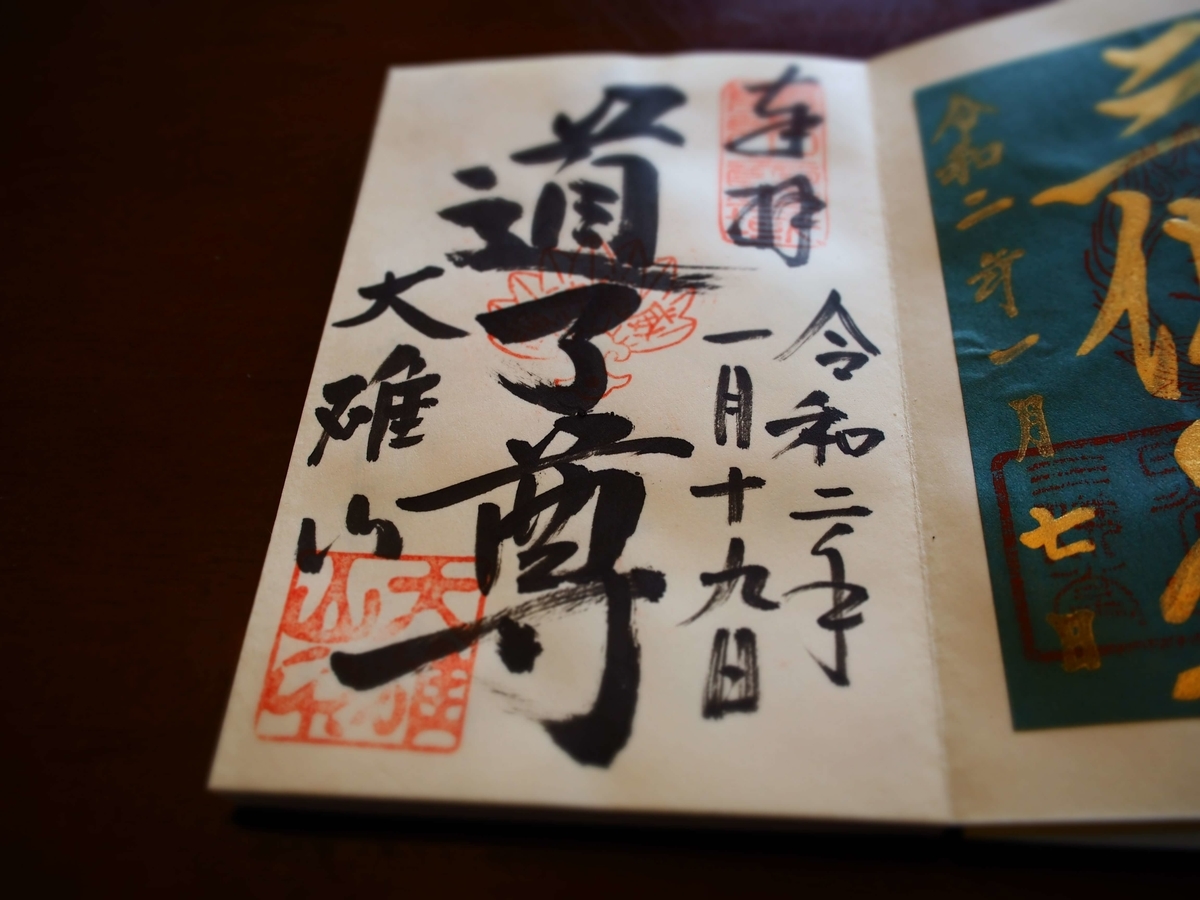 令和二年一月七日
奉拝
令和二年
一月十九日
道了尊
大雄山